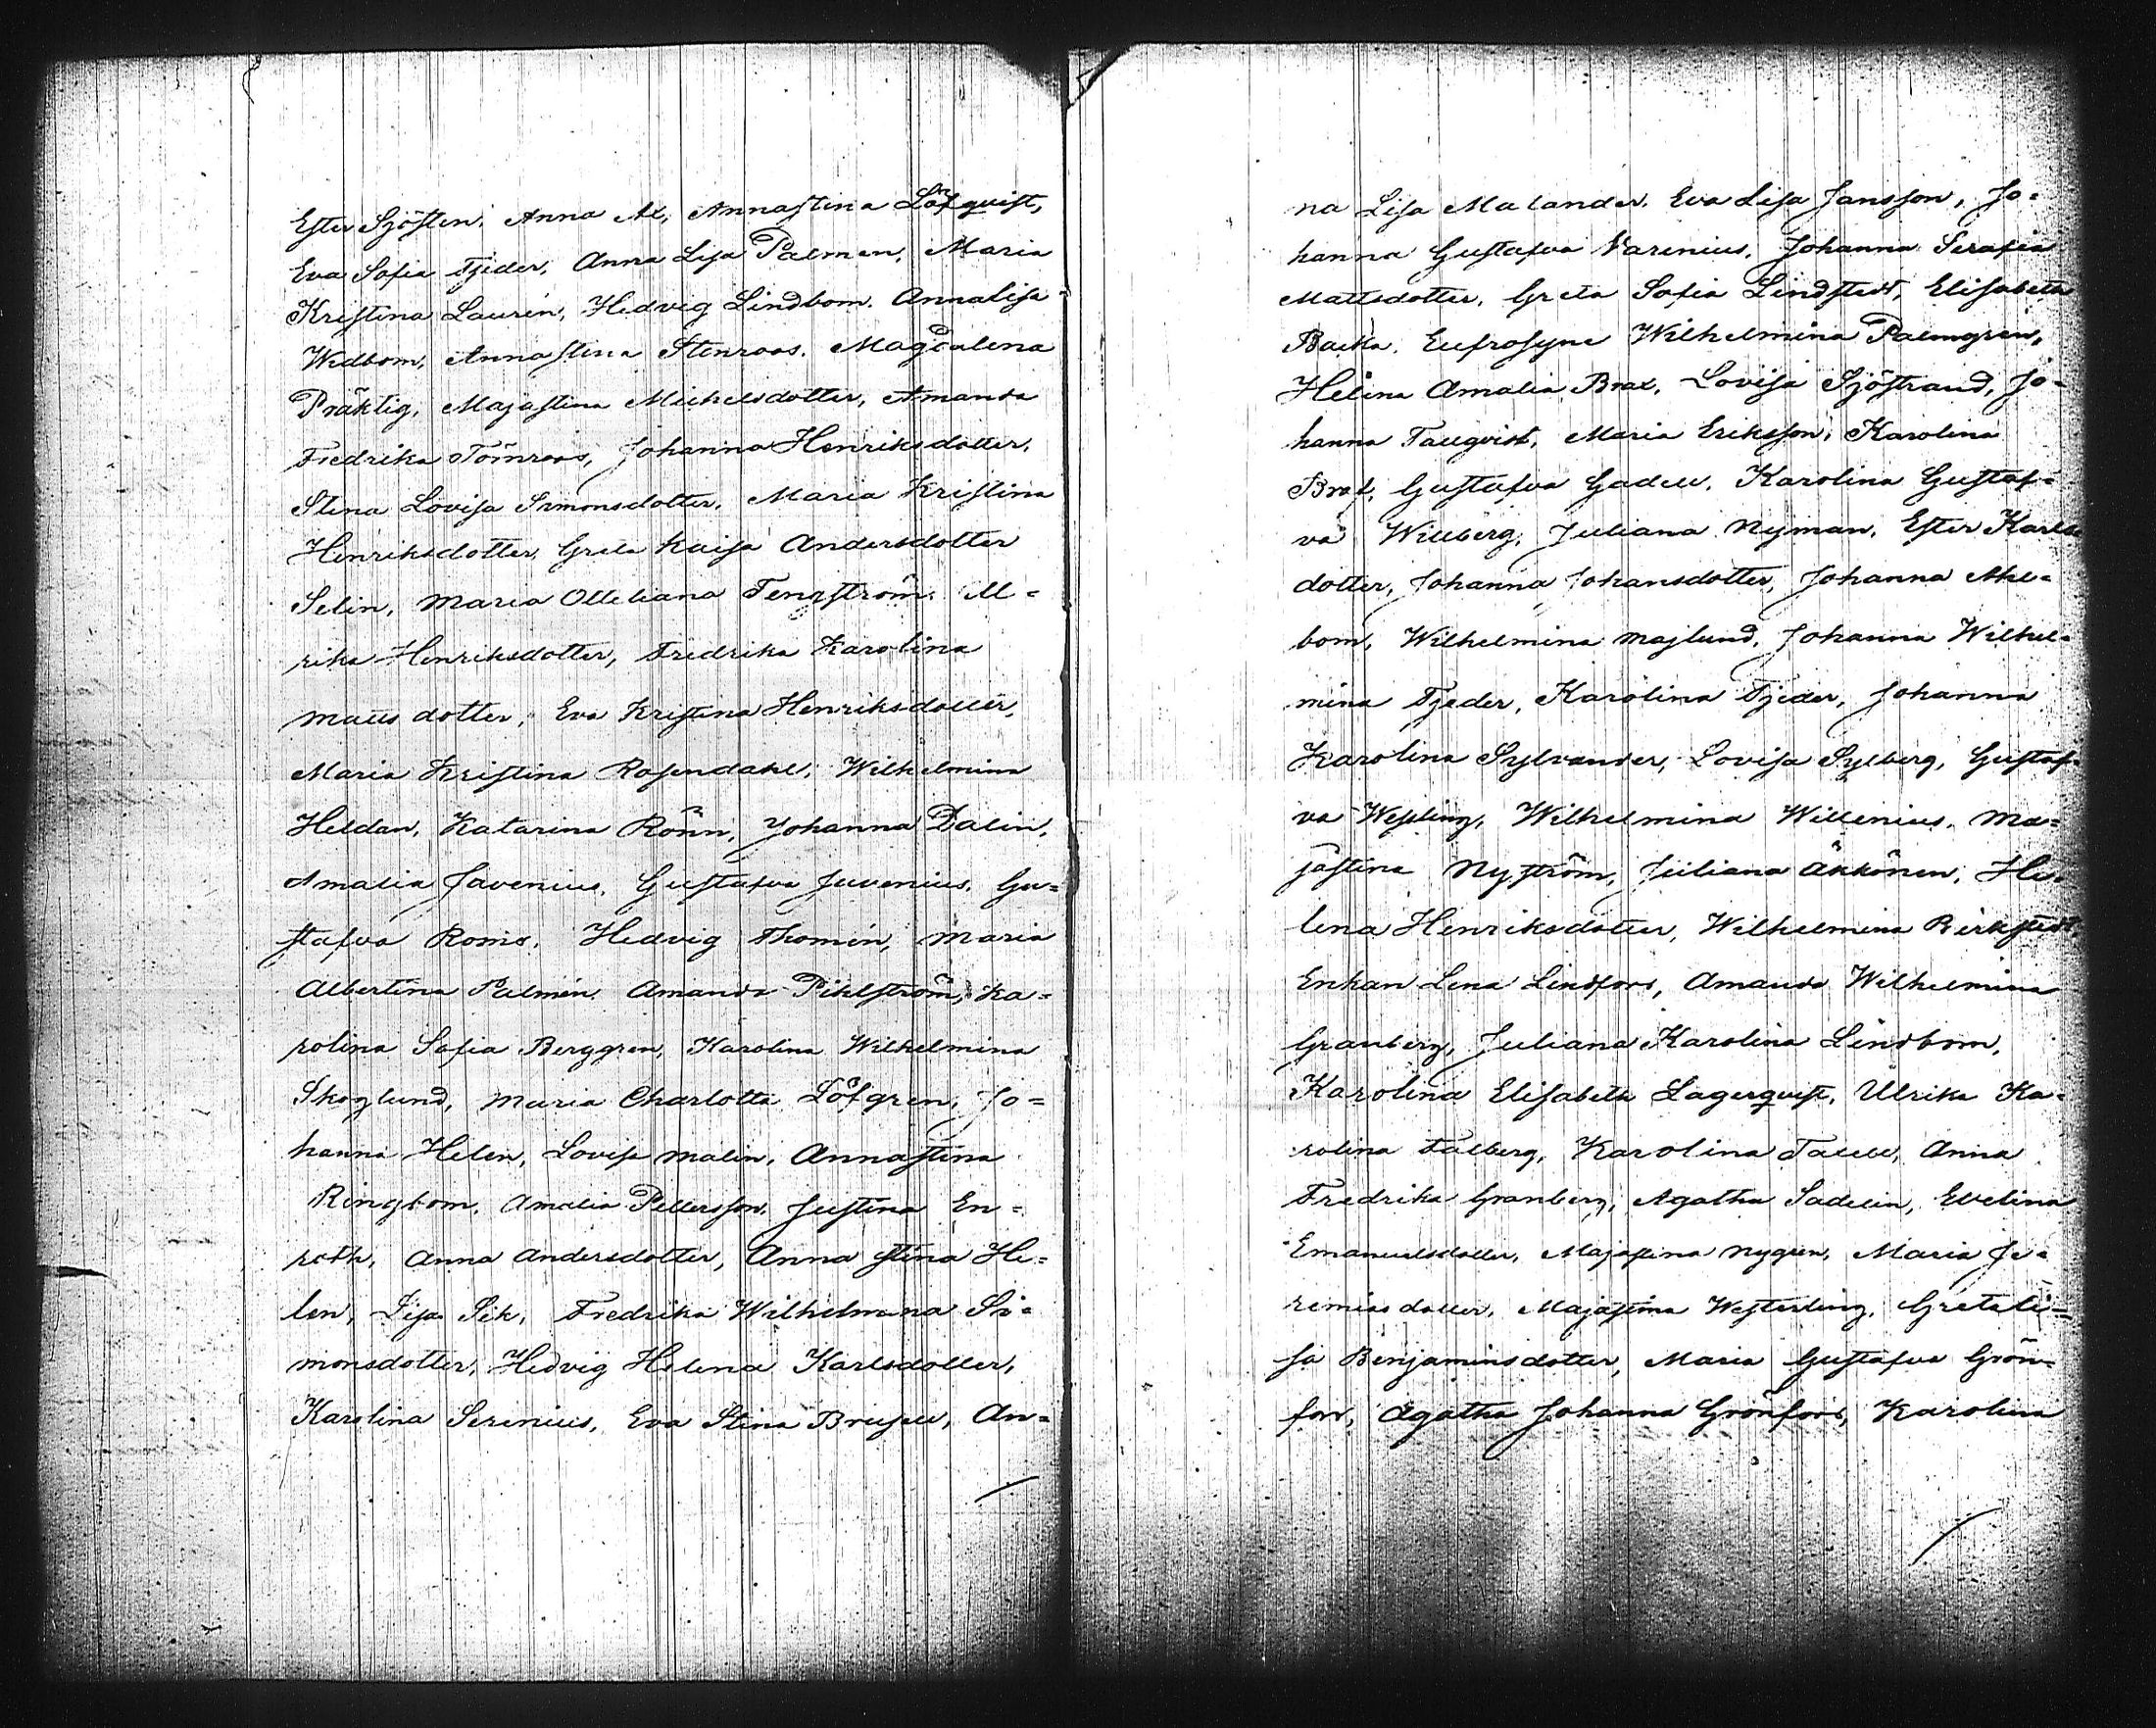 Ester Sjösten, Anna Al, Annastina Löfqvist,
Eva Sofia Tjeder, Anna Lisa Palmen, Maria
Kristina Laurén, Hedvig Lindbom, Annalisa
Wedbom, Annastina Stenroos, Magdalena
Präktig, Majastina Michelsdotter, Amanda
Fredrika Törnroos, Johanna Henriksdotter,
Stina Lovisa Simonsdotter, Maria Kristina
Henriksdotter, Greta Kaisa Andersdotter
Selin, Maria Otteliana Tengström, Ul=
rika Henriksdotter, Fredrika Karolina
Mattsdotter, Eva Kristina Henriksdotter,
Maria Kristina Rosendahl, Wilhelmina
Heldan, Katarina Rönn, Johanna Dalin,
Amalia Javenius, Gustafva Juvenius, Gu=
stafva Roms, Hedvig Thomén, Maria
Albertina Palmén, Amanda Pihlström, Ka=
rolina Sofia Berggren, Karolina Wilhelmina
Skoglund, Maria Charlotta Löfgren, Jo=
hanna Helen, Lovisa Malin, Annastina
Ringbom, Amalia Pettersson, Justina En=
roth, Anna Andersdotter, Anna Stina He=
len, Lisa Sik, Fredrika Wilhelmina Si=
monsdotter, Hedvig Helena Karlsdotter,
Karolina Serenius, Eva Stina Brusell, An=
na Lisa Malander, Eva Lisa Jansson, Jo=
hanna Gustafva Varenius, Johanna Serafia
Mattsdotter, Greta Sofia Lindstedt, Elisabeth
Backa, Eufrosyne Wilhelmina Palmgren,
Helena Amalia Brax, Lovisa Sjöstrand, Jo=
hanna Tallqvist, Maria Eriksson, Karolina
Brax, Gustafva Gadell, Karolina Gustaf=
va Willberg, Juliana Nyman, Ester Karls
dotter, Johanna Johansdotter, Johanna Ahl=
bom, Wilhelmina Majlund, Johanna Wilhel=
mina Tjeder, Karolina Tjeder, Johanna
Karolina Sylvander, Lovisa Sylberg, Gustaf=
va Wessling, Wilhelmina Willenius, Ma=
jastina Nyström, Juliana Äkkönen, He=
lena Henriksdotter, Wilhelmina Birkstedt,
Enkan Lena Lindfors, Amanda Wilhelmina
Granberg, Juliana Karolina Lindbom,
Karolina Elisabeth Lagerqvist, Ulrika Ka=
rolina Talberg, Karolina Tallel, Anna
Fredrika Granberg, Agatha Sadelin, Evelina
Emanuelsdotter, Majastina Nygren, Maria Je=
remiasdotter, Majastina Westerling, Gretali=
sa Benjaminsdotter, Maria Gustafva Grön=
fors, Agatha Johanna Grönfors, Karolina